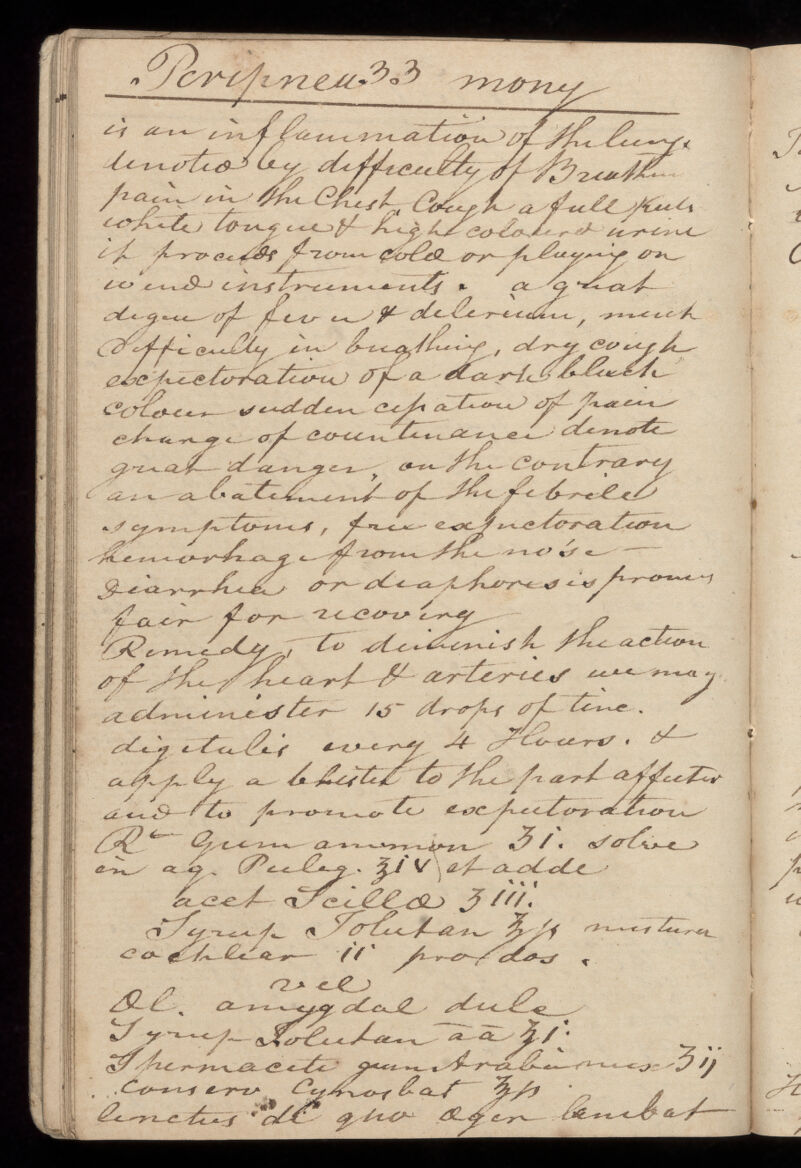 Peripneu 33 mony
is an inflammation of the lungs
denoted by difficulty of Breathin
pain in the Chest Cough a full Puls
white tongue & high coloured urine
it proceeds from cold or playing on
wind instruments. a great
degree of fever & delerium, much
Difficulty in breathing, dry cough
expectoration of a dark black
colour sudden cesation of pain
change of countenance denote
great danger, on the contrary
an abatement of the febrile
symptoms, free expectoration
hemorhage from the nose –
Diarrhea or diaphoresis promis
fair for recovery
Remedy, to diminish the action
of the heart & arteries we may
administer 15 drops of tinc.
digitalis every 4 Hours. &
apply a blister to the part affected
and to promote expectoration
Rx Gum ammon ʒi. solve
in aq. Puleg. ℥iv et adde
acet Scillæ ʒiii.
Syrup Tolutan ℥ß mistura
cochlear ii pro dos.
vel
Ol. amygdal dulc
Syrup Tolutan āā ℥i.
Spermaceti gum Arabic ʒij
conserv Cynosbat ℥ß
linctus de quo æger lambat